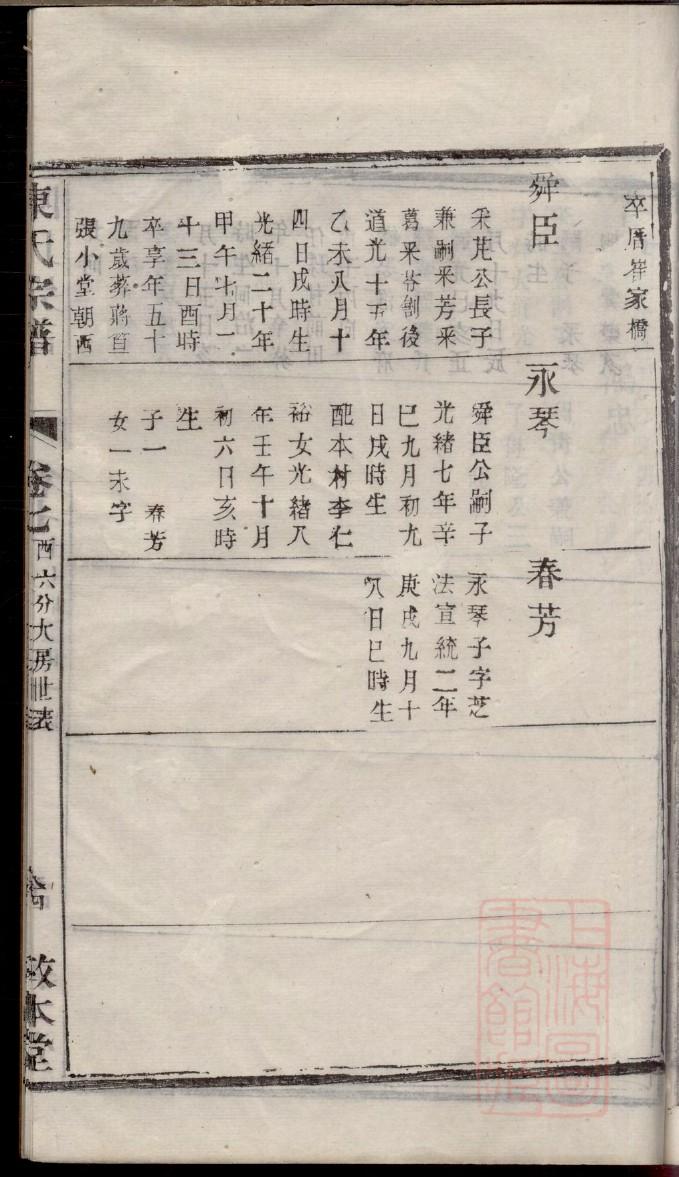 卒厝崔家橋
舜臣
采芹公長子
兼嗣采芳采
葛采苓劄後
道光十五年
乙未八月十
四日戌時生
光緒二十年
甲午七月二
十三日酉時
卒享年五十
九歲葬蔣
張小堂朝西
永琴
舜臣公嗣子
光緒七年辛
巳九月初九
日戌時生
配本村李仁
裕女光緒八
年壬午十月
初六日亥時
生
子一 春芳
女一未字
春芳
永琴子字芝
法宣統二年
庚戌九月十
八日巳時生
氏宗譜 卷七 西六分大房世表 敦本堂
上海圖書館藏